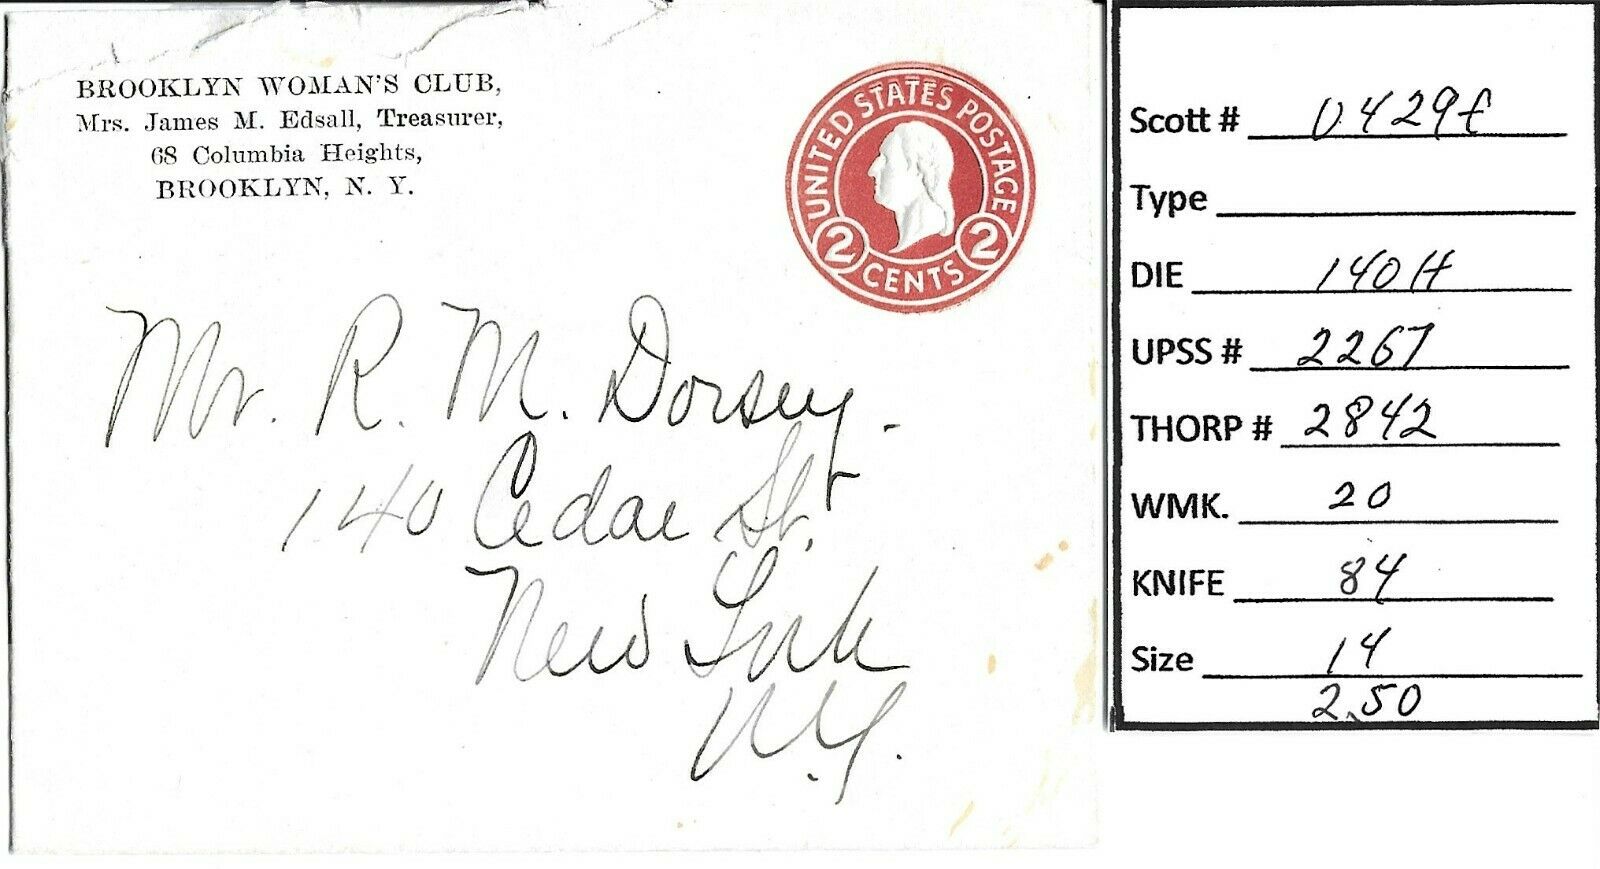 BROOKLYN WOMAN'S CLUB,
Mrs. James M. Edsall, Treasurer,
68 Columbia Heights,
BROOKLYN, N. Y.
UNITED STATES POSTAGE
2 CENTS 2
Mr. R. M. Dorsey.
140 Cedar St.
New York
N.Y.
Scott # U429f
Type
DIE 140H
UPSS # 2267
THORP # 2842
WMK. 20
KNIFE 84
Size 14
2.50